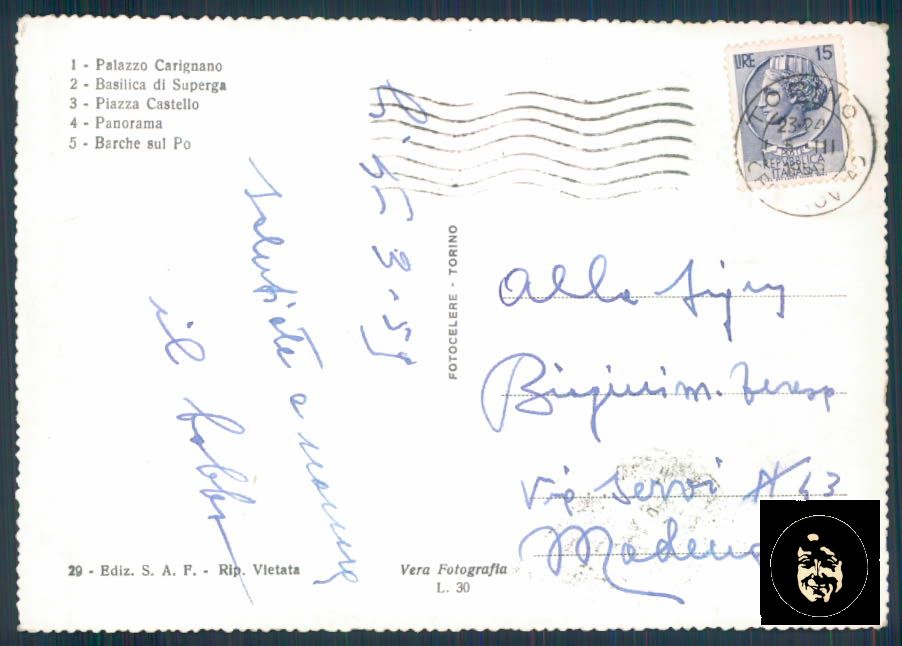 1 - Palazzo Carignano
2 - Basilica di Superga
3 - Piazza Castello
4 - Panorama
5 - Barche sul Po
LIRE 15
REPUBBLICA
ITALIANA
23-24
III
FOTOCELERE - TORINO
3-59
salutate a
il babbo
Alla
Teresa
Via Servi N 43
Modena
29 - Ediz. S. A. F. - Rip. Vietata
Vera Fotografia
L. 30